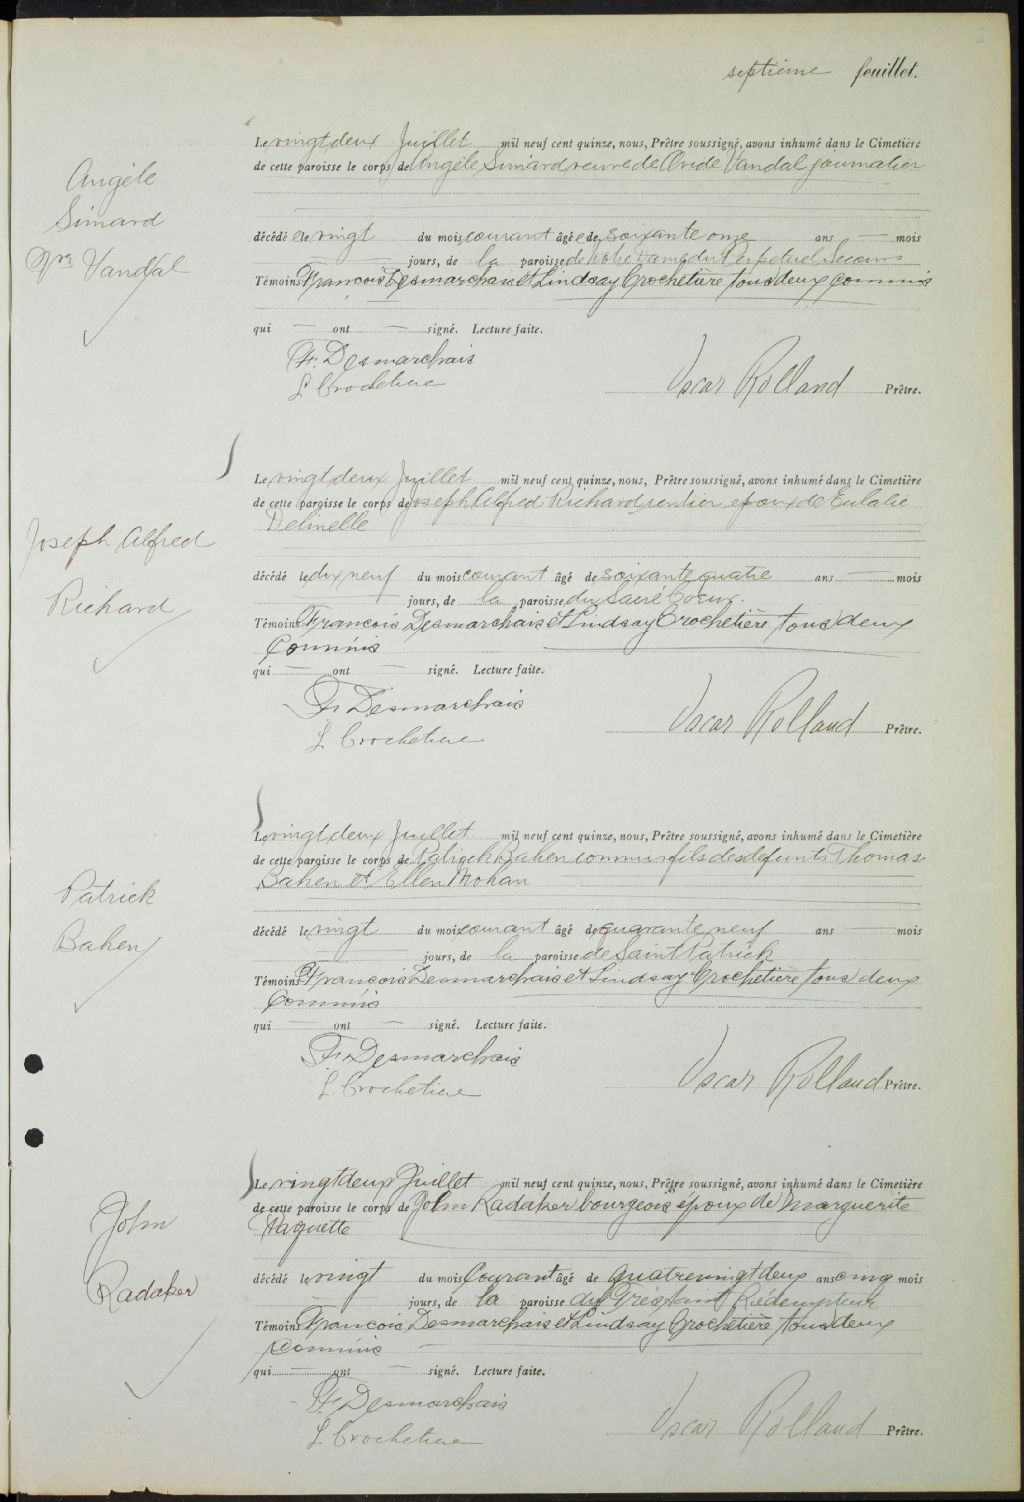 septième feuillet.
Angèle
Simard
Vve Vandal
Le vingt deux Juillet mil neuf cent quinze, nous, Prêtre soussigné, avons inhumé dans le Cimetière
de cette paroisse le corps de Angèle Simard veuve de Ovide Vandal journalier
décédée le vingt du mois courant âgée de soixante onze ans — mois
— jours, de la paroisse de Notre Dame du Perpétuel Secours
Témoins François Desmarchais et Lindsay Crochetière tous deux commis
qui — ont — signé. Lecture faite.
Fr. Desmarchais
L. Crochetiere
Oscar Rolland Prêtre.
Joseph Alfred
Richard
Le vingt deux Juillet mil neuf cent quinze, nous, Prêtre soussigné, avons inhumé dans le Cimetière
de cette paroisse le corps de Joseph Alfred Richard rentier époux de Eulalie
Delinelle
décédé le dix neuf du mois courant âgé de soixante quatre ans — mois
— jours, de la paroisse du Sacré Coeur.
Témoins François Desmarchais et Lindsay Crochetière tous deux
Commis
qui — ont — signé. Lecture faite.
Fr Desmarchais
L. Crochetiere
Oscar Rolland Prêtre.
Patrick
Bahen
Le vingt deux Juillet mil neuf cent quinze, nous, Prêtre soussigné, avons inhumé dans le Cimetière
de cette paroisse le corps de Patrick Bahen commis fils des defunts Thomas
Bahen et Ellen Mohan
décédé le vingt du mois courant âgé de quarante neuf ans — mois
jours, de la paroisse de Saint Patrick
Témoins François Desmarchais et Lindsay Crochetière tous deux
Commis
qui — ont — signé. Lecture faite.
Fr Desmarchais
L. Crochetiere
Oscar Rolland Prêtre.
John
Radaker
Le vingt deux Juillet mil neuf cent quinze, nous, Prêtre soussigné, avons inhumé dans le Cimetière
de cette paroisse le corps de John Radaker bourgeois époux de Marguerite
Paquette
décédé le vingt du mois Courant âgé de quatre vingt deux ans cinq mois
— jours, de la paroisse du Très Saint Rédempteur
Témoins François Desmarchais et Lindsay Crochetière tous deux
Commis —
qui — ont — signé. Lecture faite.
Fr Desmarchais
L. Crochetiere
Oscar Rolland Prêtre.